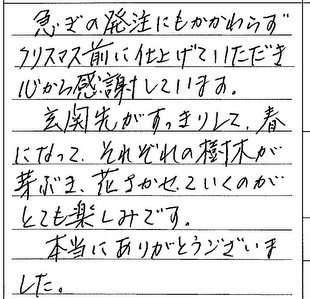 急ぎの発注にもかかわらず
クリスマス前に仕上げていただき
心から感謝しています。
玄関先がすっきりして、春
になって、それぞれの樹木が
芽ぶき、花さかせていくのが
とても楽しみです。
本当にありがとうございま
した。